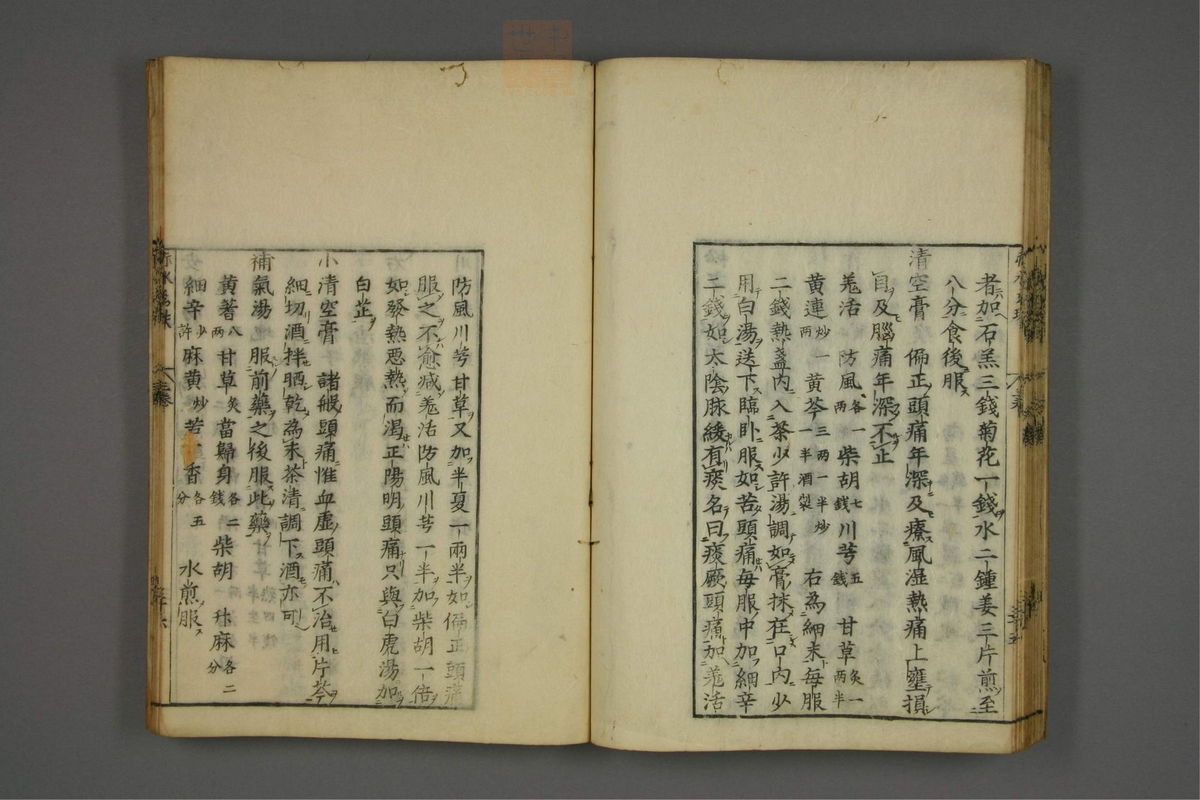 者加石羔三錢菊花一錢水二鍾姜三片煎至
八分食後服
清空膏 偏正頭痛年深及療風湿熱痛上壅損
目及腦痛年深不止
羗活 防風各一兩 柴胡七錢 川芎五錢 甘草炙一兩半
黄連炒一兩 黄芩三兩一半炒一半酒製 右為細末每服
二錢熱盞内入茶少許湯調如膏抹在口内少
用白湯送下臨卧服如苦頭痛每服中加細辛
二錢如太陰脉緩有痰名曰痰厥頭痛加羗活
防風川芎甘草又加半夏一兩半如偏正頭痛
服之不愈减羗活防風川芎一半加柴胡一倍
如發熱悪熱而渇正陽明頭痛只與白虎湯加
白芷
小清空膏 諸般頭痛惟血虚頭痛不治用片芩
細切酒拌晒乾為末茶清調下酒亦可
補氣湯 服前藥之後服此藥
黄著八兩 甘草炙 當歸身各二錢 柴胡 升麻各二分
細辛少許 麻黄炒 苦 香各五分 水煎服